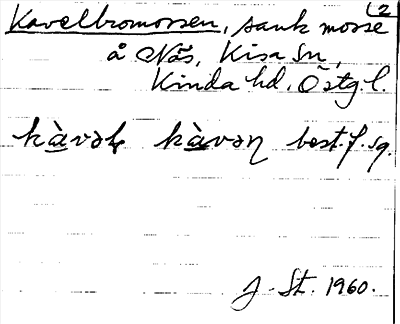 (2
Kavelbromossen, sank mosse
å Näs, Kisa sn,
Kinda hd, Östg.l.
kàvəɫ kàvəɳ best.f.sg.
J. St. 1960.